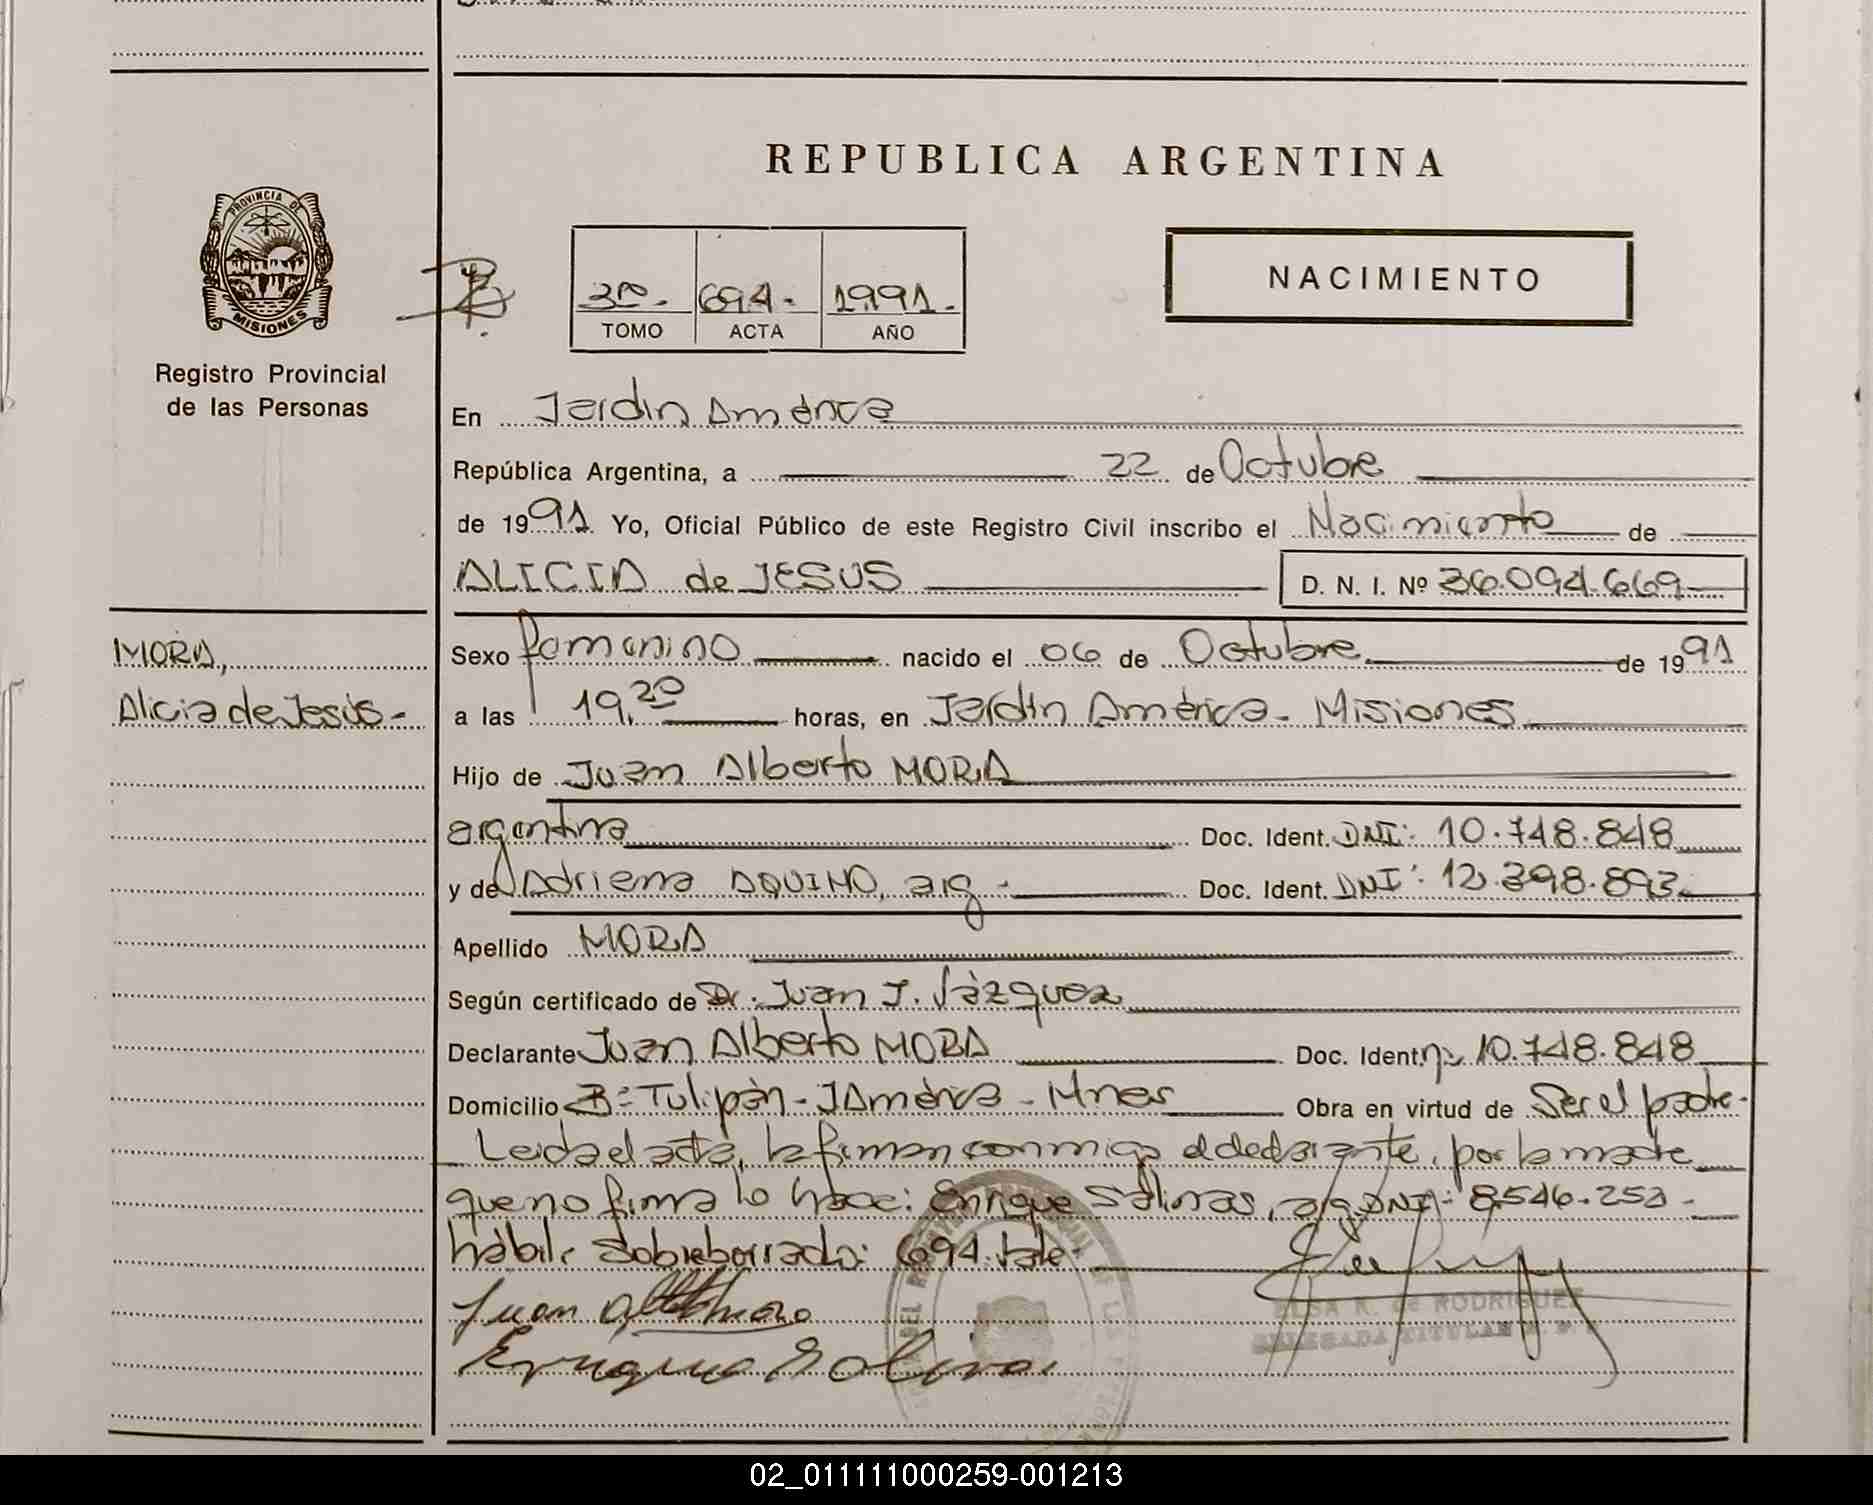 REPUBLICA ARGENTINA
PROVINCIA DE
MISIONES
Registro Provincial
de las Personas
3ro. 694. 1991.
TOMO ACTA AÑO
NACIMIENTO
En Jardín América
República Argentina, a 22 de Octubre
de 1991 Yo, Oficial Público de este Registro Civil inscribo el Nacimiento de
ALICIA de JESUS D. N. I. Nº 36.094.669
MORA,
Alicia de Jesús-
Sexo femenino nacido el 06 de Octubre de 1991
a las 19,20 horas, en Jardín América- Misiones
Hijo de Juan Alberto MORA
argentina Doc. Ident. DNI: 10.748.848
y de Adriana AQUINO, arg. Doc. Ident. DNI: 12.398.893.
Apellido MORA
Según certificado de Dr. Juan J. Vázquez
Declarante Juan Alberto MORA Doc. Ident. 10.748.848
Domicilio Bº Tulipán- JAmérica- Mnes Obra en virtud de Ser el padre-
Leída el acta, la firman conmigo el declarante, por la madre
que no firma lo hace: Enrique Salinas, arg. DNI: 8.546.252-
hábil. Sobreborrado: 694. Vale-
ELSA R. de RODRIGUEZ
DELEGADA TITULAR
02_011111000259-001213